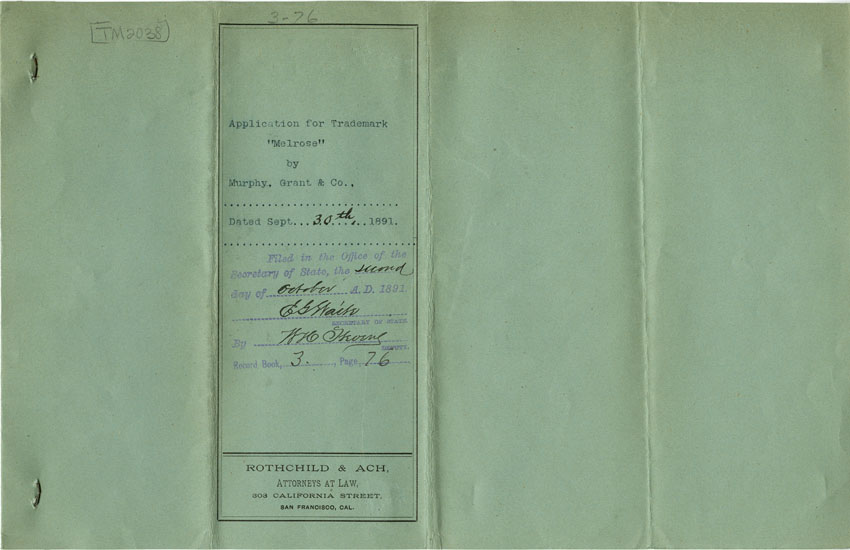 TM2038
3-76
Application for Trademark
"Melrose"
by
Murphy, Grant & Co.,
Dated Sept...30th...1891.
Filed in the Office of the
Secretary of State, the second
day of October A.D. 1891
E G Waite
SECRETARY OF STATE.
By W H
DEPUTY.
Record Book, 3. , Page, 76
ROTHCHILD & ACH,
ATTORNEYS AT LAW,
303 CALIFORNIA STREET,
SAN FRANCISCO, CAL.